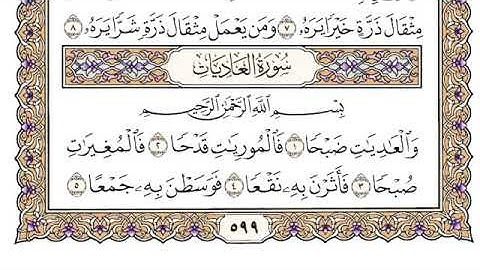 مِثْقَالَ ذَرَّةٍ خَيْرًا يَرَهُۥ ٧ وَمَن يَعْمَلْ مِثْقَالَ ذَرَّةٍ شَرًّا يَرَهُۥ ٨
سُورَةُ العَادِيَاتِ
بِسْمِ اللَّهِ الرَّحْمَٰنِ الرَّحِيمِ
وَٱلْعَٰدِيَٰتِ ضَبْحًا ١ فَٱلْمُورِيَٰتِ قَدْحًا ٢ فَٱلْمُغِيرَٰتِ
صُبْحًا ٣ فَأَثَرْنَ بِهِۦ نَقْعًا ٤ فَوَسَطْنَ بِهِۦ جَمْعًا ٥
٥٩٩